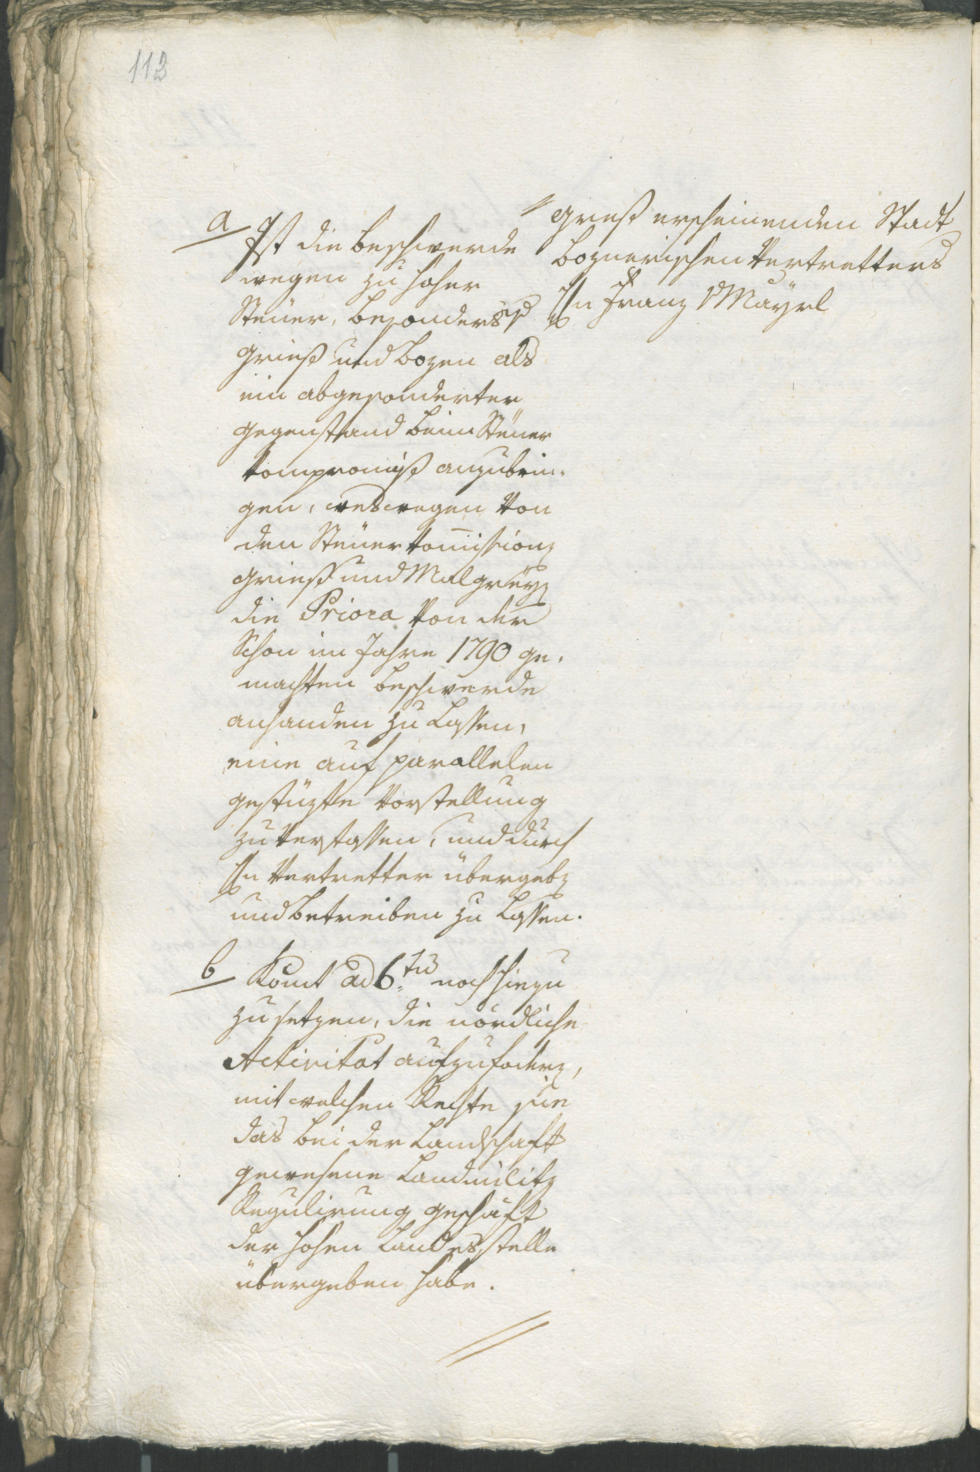 112
a Ist die beschwerde
wegen zu hoher
Steüer, besonders
Grieß und Bozen als
ein abgesonderter
gegenstand beim Steüer
Kompromiß anzubrin-
gen, weswegen von
den Steüerkomißion
Grieß und Malgreÿ
die Priora von der
Schon im Jahre 1790 ge-
machten beschwerde
anhanden zu Lassen,
eine auf parallelen
gestüzte Vorstellung
zu Verfassen, und durch
Hn Vertretter übergeb
und betreiben zu Lassen.
b Komt ad 6 noch hiezu
zu setzen, die nördliche
Activitæt aufzufodern,
mit welchen Rechte sie
das bei der Landschaft
gewesene Landmilitz
Regulirung geschäft
der hohen Landesstelle
übergeben habe.
Grieß erscheinenden Stadt
Boznerischen Vertretters
Hn Franz v Maÿrl